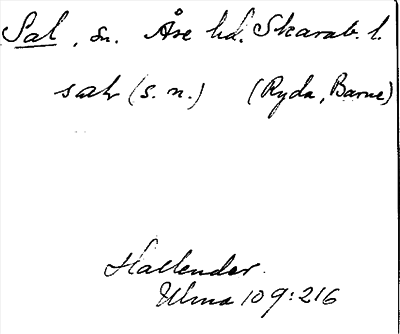 Sal, sn. Åse hd. Skarab. l.
(s. n.) (Ryda, Barne)
Hallender.
Ulma 109:216